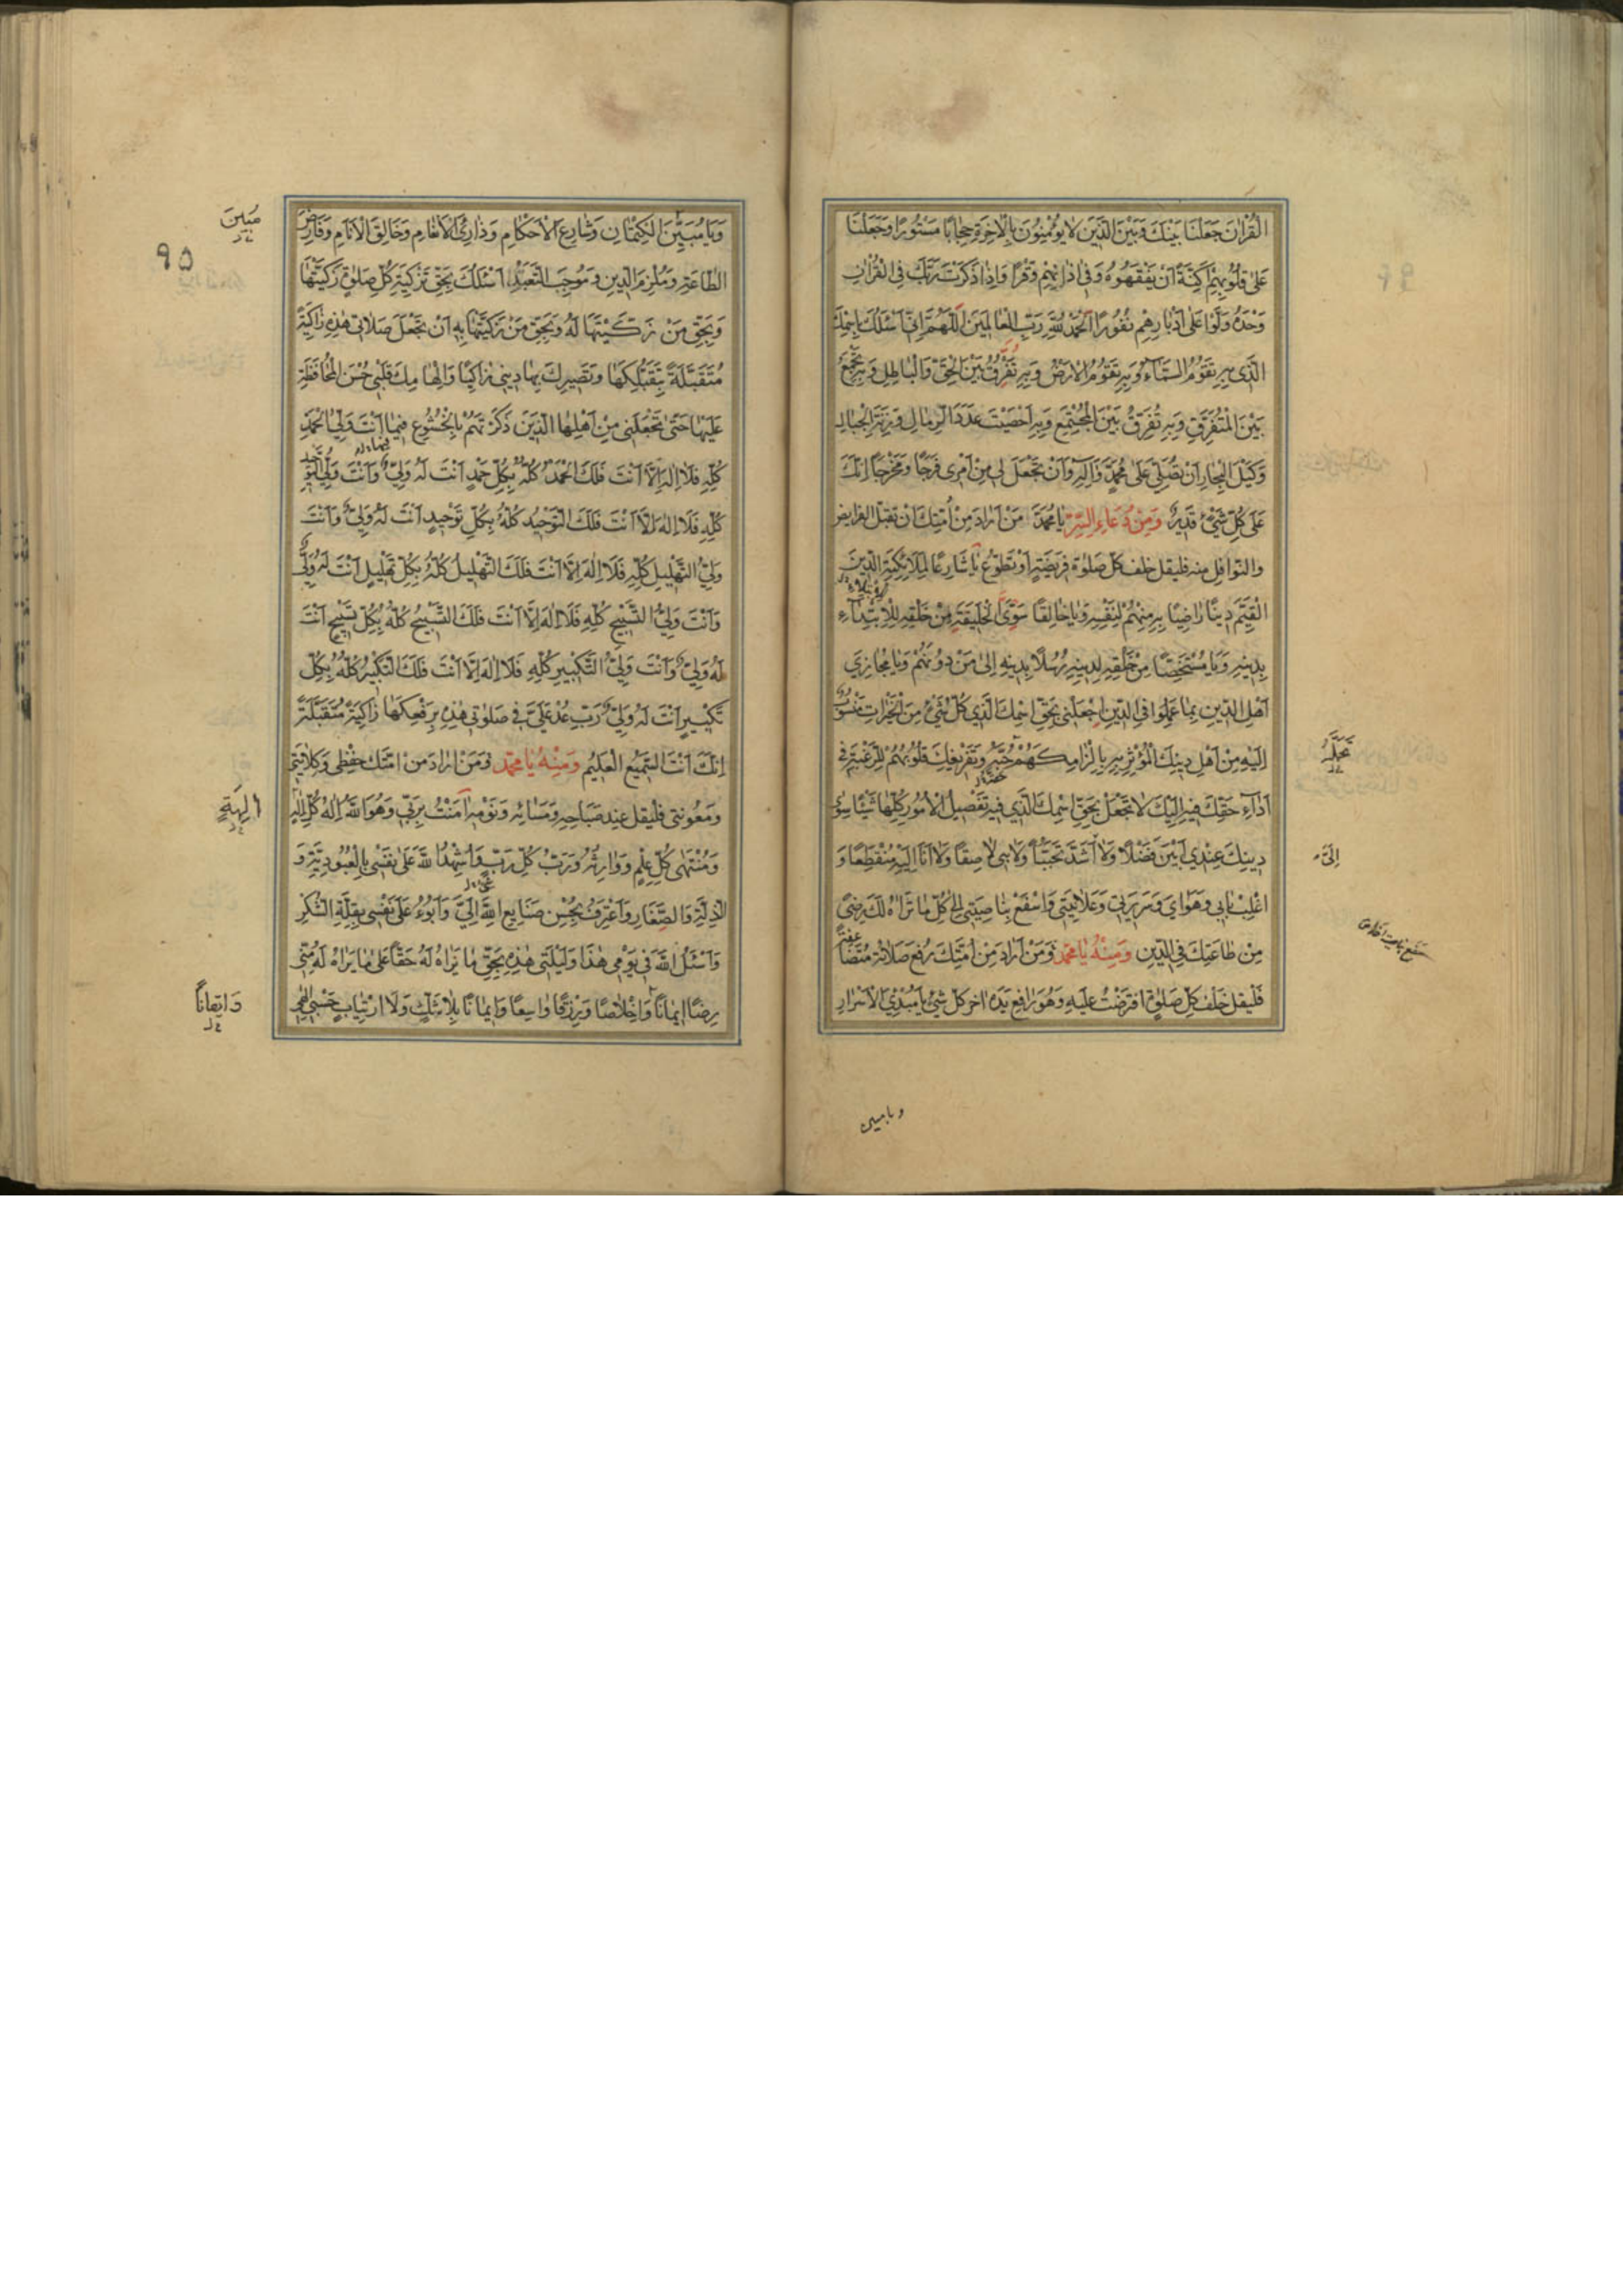 الْقُرْاٰنَ جَعَلْنَا بَيْنَكَ وَبَيْنَ الَّذِينَ لَا يُؤْمِنُونَ بِالْاٰخِرَةِ حِجَابًا مَسْتُورًا وَجَعَلْنَا
عَلٰى قُلُوبِهِمْ اَكِنَّةً اَنْ يَفْقَهُوهُ وَفِي اٰذَانِهِمْ وَقْرًا وَاِذَا ذَكَرْتَ رَبَّكَ فِي الْقُرْاٰنِ
وَحْدَهُ وَلَّوْا عَلٰى اَدْبَارِهِمْ نُفُورًا اَلْحَمْدُ لِلّٰهِ رَبِّ الْعَالَمِينَ اَللّٰهُمَّ اِنِّي اَسْئَلُكَ بِاسْمِكَ
الَّذِي بِهِ تَقُومُ السَّمَاۤءُ وَبِهِ تَقُومُ الْاَرْضُ وَبِهِ تُفَرِّقُ بَيْنَ الْحَقِّ وَالْبَاطِلِ وَبِهِ تَجْمَعُ
بَيْنَ الْمُتَفَرِّقِ وَبِهِ تُفَرِّقُ بَيْنَ الْمُجْتَمِعِ وَبِهِ اَحْصَيْتَ عَدَدَ الرِّمَالِ وَزِنَةَ الْجِبَالِ
وَكَيْلَ الْبِحَارِ اَنْ تُصَلِّيَ عَلٰى مُحَمَّدٍ وَاٰلِهِ وَاَنْ تَجْعَلَ لِي مِنْ اَمْرِي فَرَجًا وَمَخْرَجًا اِنَّكَ
عَلٰى كُلِّ شَيْءٍ قَدِيرٌ وَمِنْ دُعَاءِ السِّرِّ يَا مُحَمَّدُ مَنْ اَرَادَ مِنْ اُمَّتِكَ اَنْ تقبل الفرايض
والنوافل منه فليقل خلف كل صلوة فريضة اَوْ تطوّع يَا شَارِعًا لِمَلَائِكَتِهِ الدِّينَ
الْقَيِّمَ دِينًا رَاضِيًا بِهِ مِنْهُمْ لِنَفْسِهِ وَيَا خَالِقًا سِوَى الْخَلِيقَةِ مِنْ خَلْقِهِ لِلْاِبْتِلَاءِ
بِدِينِهِ وَيَا مُسْتَخِصًّا مِنْ خَلْقِهِ لِدِينِهِ رُسُلًا بِدِينِهِ اِلٰى مَنْ دُونَهُمْ وَيَا مُجَازِيَ
اَهْلِ الدِّينِ بِمَا عَمِلُوا فِي الدِّينِ اِجْعَلْنِي بِحَقِّ اسْمِكَ الَّذِي كُلُّ شَيْءٍ مِنَ الْخَيْرَاتِ مَنْسُوبٌ
اِلَيْهِ مِنْ اَهْلِ دِينِكَ الْمُؤْثِرِ بِهِ بِاِلْزَامِكَهُمْ حُبَّهُ وَتَفْرِيغِكَ قُلُوبَهُمْ لِلرَّغْبَةِ فِي
اَدَاۤءِ حَقِّكَ فِيهِ اِلَيْكَ لَا تَجْعَلْ بِحَقِّ اسْمِكَ الَّذِي فِيهِ تَفْصِيلُ الْاُمُورِ كُلِّهَا شَيْئًا سِوٰى
دِينِكَ عِنْدِي اَبْيَنَ فَضْلًا وَلَا اَشَدَّ تَحَبُّبًا وَلَا بِي لَاصِقًا وَلَا اَنَا اِلَيْهِ مُنْقَطِعًا وَ
اغْلِبْ بَالِي وَهَوَايَ وَسَرِيرَتِي وَعَلَانِيَتِي وَاسْفَعْ بِنَاصِيَتِي اِلٰى كُلِّ مَا تَرَاهُ لَكَ رِضًى
مِنْ طَاعَتِكَ فِي الدِّينِ وَمِنْهُ يَا مُحَمَّدُ وَمَنْ اَرَادَ مِنْ اُمَّتِكَ رَفْعَ صَلَاتِهِ مُتَضَاعِفَةً
فَلْيقل خَلْفَ كُلِّ صَلٰوةٍ افْتَرَضْتُ عَلَيْهِ وَهُوَ رَافِعٌ يَدَهُ اٰخِرَ كُلِّ شَيْءٍ يَا مُبْدِئَ الْاَسْرَارِ
اِلَيَّ
وَيَا مُبَيِّنَ الْكِتْمَانِ وَشَارِعَ الْاَحْكَامِ وَذَارِئَ الْاَنْعَامِ وَخَالِقَ الْاَنَامِ وَفَارِضَ
الطَّاعَةِ وَمُلْزِمَ الدِّينِ وَمُوجِبَ التَّعَبُّدِ اَسْئَلُكَ بِحَقِّ تَزْكِيَةِ كُلِّ صَلٰوةٍ زَكَّيْتَهَا
وَبِحَقِّ مَنْ زَكَّيْتَهَا لَهُ وَبِحَقِّ مَنْ زَكَّيْتَهَا بِهِ اَنْ تَجْعَلَ صَلَاتِي هٰذِهِ زَاكِيَةً
مُتَقَبَّلَةً بِتَقَبُّلِكَهَا وَتَصْيِيرِكَ بِهَا دِينِي زَاكِيًا وَاِلْهَامِكَ قَلْبِي حُسْنَ الْمُحَافَظَةِ
عَلَيْهَا حَتّٰى تَجْعَلَنِي مِنْ اَهْلِهَا الَّذِينَ ذَكَرْتَهُمْ بِالْخُشُوعِ فِيهَا اَنْتَ وَلِيُّ الْحَمْدِ
كُلِّهِ فَلَا اِلٰهَ اِلَّا اَنْتَ فَلَكَ الْحَمْدُ كُلُّهُ بِكُلِّ حَمْدٍ اَنْتَ لَهُ وَلِيٌّ وَاَنْتَ وَلِيُّ التَّوْحِيدِ
كُلِّهِ فَلَا اِلٰهَ اِلَّا اَنْتَ فَلَكَ التَّوْحِيدُ كُلُّهُ بِكُلِّ تَوْحِيدٍ اَنْتَ لَهُ وَلِيٌّ وَاَنْتَ
وَلِيُّ التَّهْلِيلِ كُلِّهِ فَلَا اِلٰهَ اِلَّا اَنْتَ فَلَكَ التَّهْلِيلُ كُلُّهُ بِكُلِّ تَهْلِيلٍ اَنْتَ لَهُ وَلِيٌّ
وَاَنْتَ وَلِيُّ التَّسْبِيحِ كُلِّهِ فَلَا اِلٰهَ اِلَّا اَنْتَ فَلَكَ التَّسْبِيحُ كُلُّهُ بِكُلِّ تَسْبِيحٍ اَنْتَ
لَهُ وَلِيٌّ وَاَنْتَ وَلِيُّ التَّكْبِيرِ كُلِّهِ فَلَا اِلٰهَ اِلَّا اَنْتَ فَلَكَ التَّكْبِيرُ كُلُّهُ بِكُلِّ
تَكْبِيرٍ اَنْتَ لَهُ وَلِيٌّ رَبِّ عُدْ عَلَيَّ فِي صَلٰوتِي هٰذِهِ بِرَفْعِكَهَا زَاكِيَةً مُتَقَبَّلَةً
اِنَّكَ اَنْتَ السَّمِيعُ الْعَلِيمُ وَمِنْهُ يَا مُحَمَّدُ وَمَنْ اَرَادَ مِنْ اُمَّتِكَ حِفْظِي وَكِلَائَتِي
وَمَعُونَتِي فليقل عِنْدَ صَبَاحِهِ وَمَسَائِهِ وَنَوْمِهِ اٰمَنْتُ بِرَبِّي وَهُوَ اللّٰهُ اِلٰهُ كُلِّ اِلٰهٍ
وَمُنْتَهٰى كُلِّ عِلْمٍ وَوَارِثُهُ وَرَبُّ كُلِّ رَبٍّ وَاُشْهِدُ اللّٰهَ عَلٰى نَفْسِي بِالْعُبُودِيَّةِ وَ
الذِّلَّةِ وَالصَّغَارِ وَاَعْتَرِفُ بِحُسْنِ صَنَايِعِ اللّٰهِ اِلَيَّ وَاَبُوءُ عَلٰى نَفْسِي بِقِلَّةِ الشُّكْرِ
وَاَسْئَلُ اللّٰهَ فِي يَوْمِي هٰذَا وَلَيْلَتِي هٰذِهِ بِحَقِّ مَا يَرَاهُ لَهُ حَقًّا عَلٰى مَا يَرَاهُ لَهُ مِنِّي
رِضًا اِيمَانًا وَاِخْلَاصًا وَرِزْقًا وَاسِعًا وَاِيمَانًا بِلَا شَكٍّ وَلَا ارْتِيَابٍ حَسْبِي اِلٰهِي
مُبِينَ
٩٥
وَاِيقَانًا